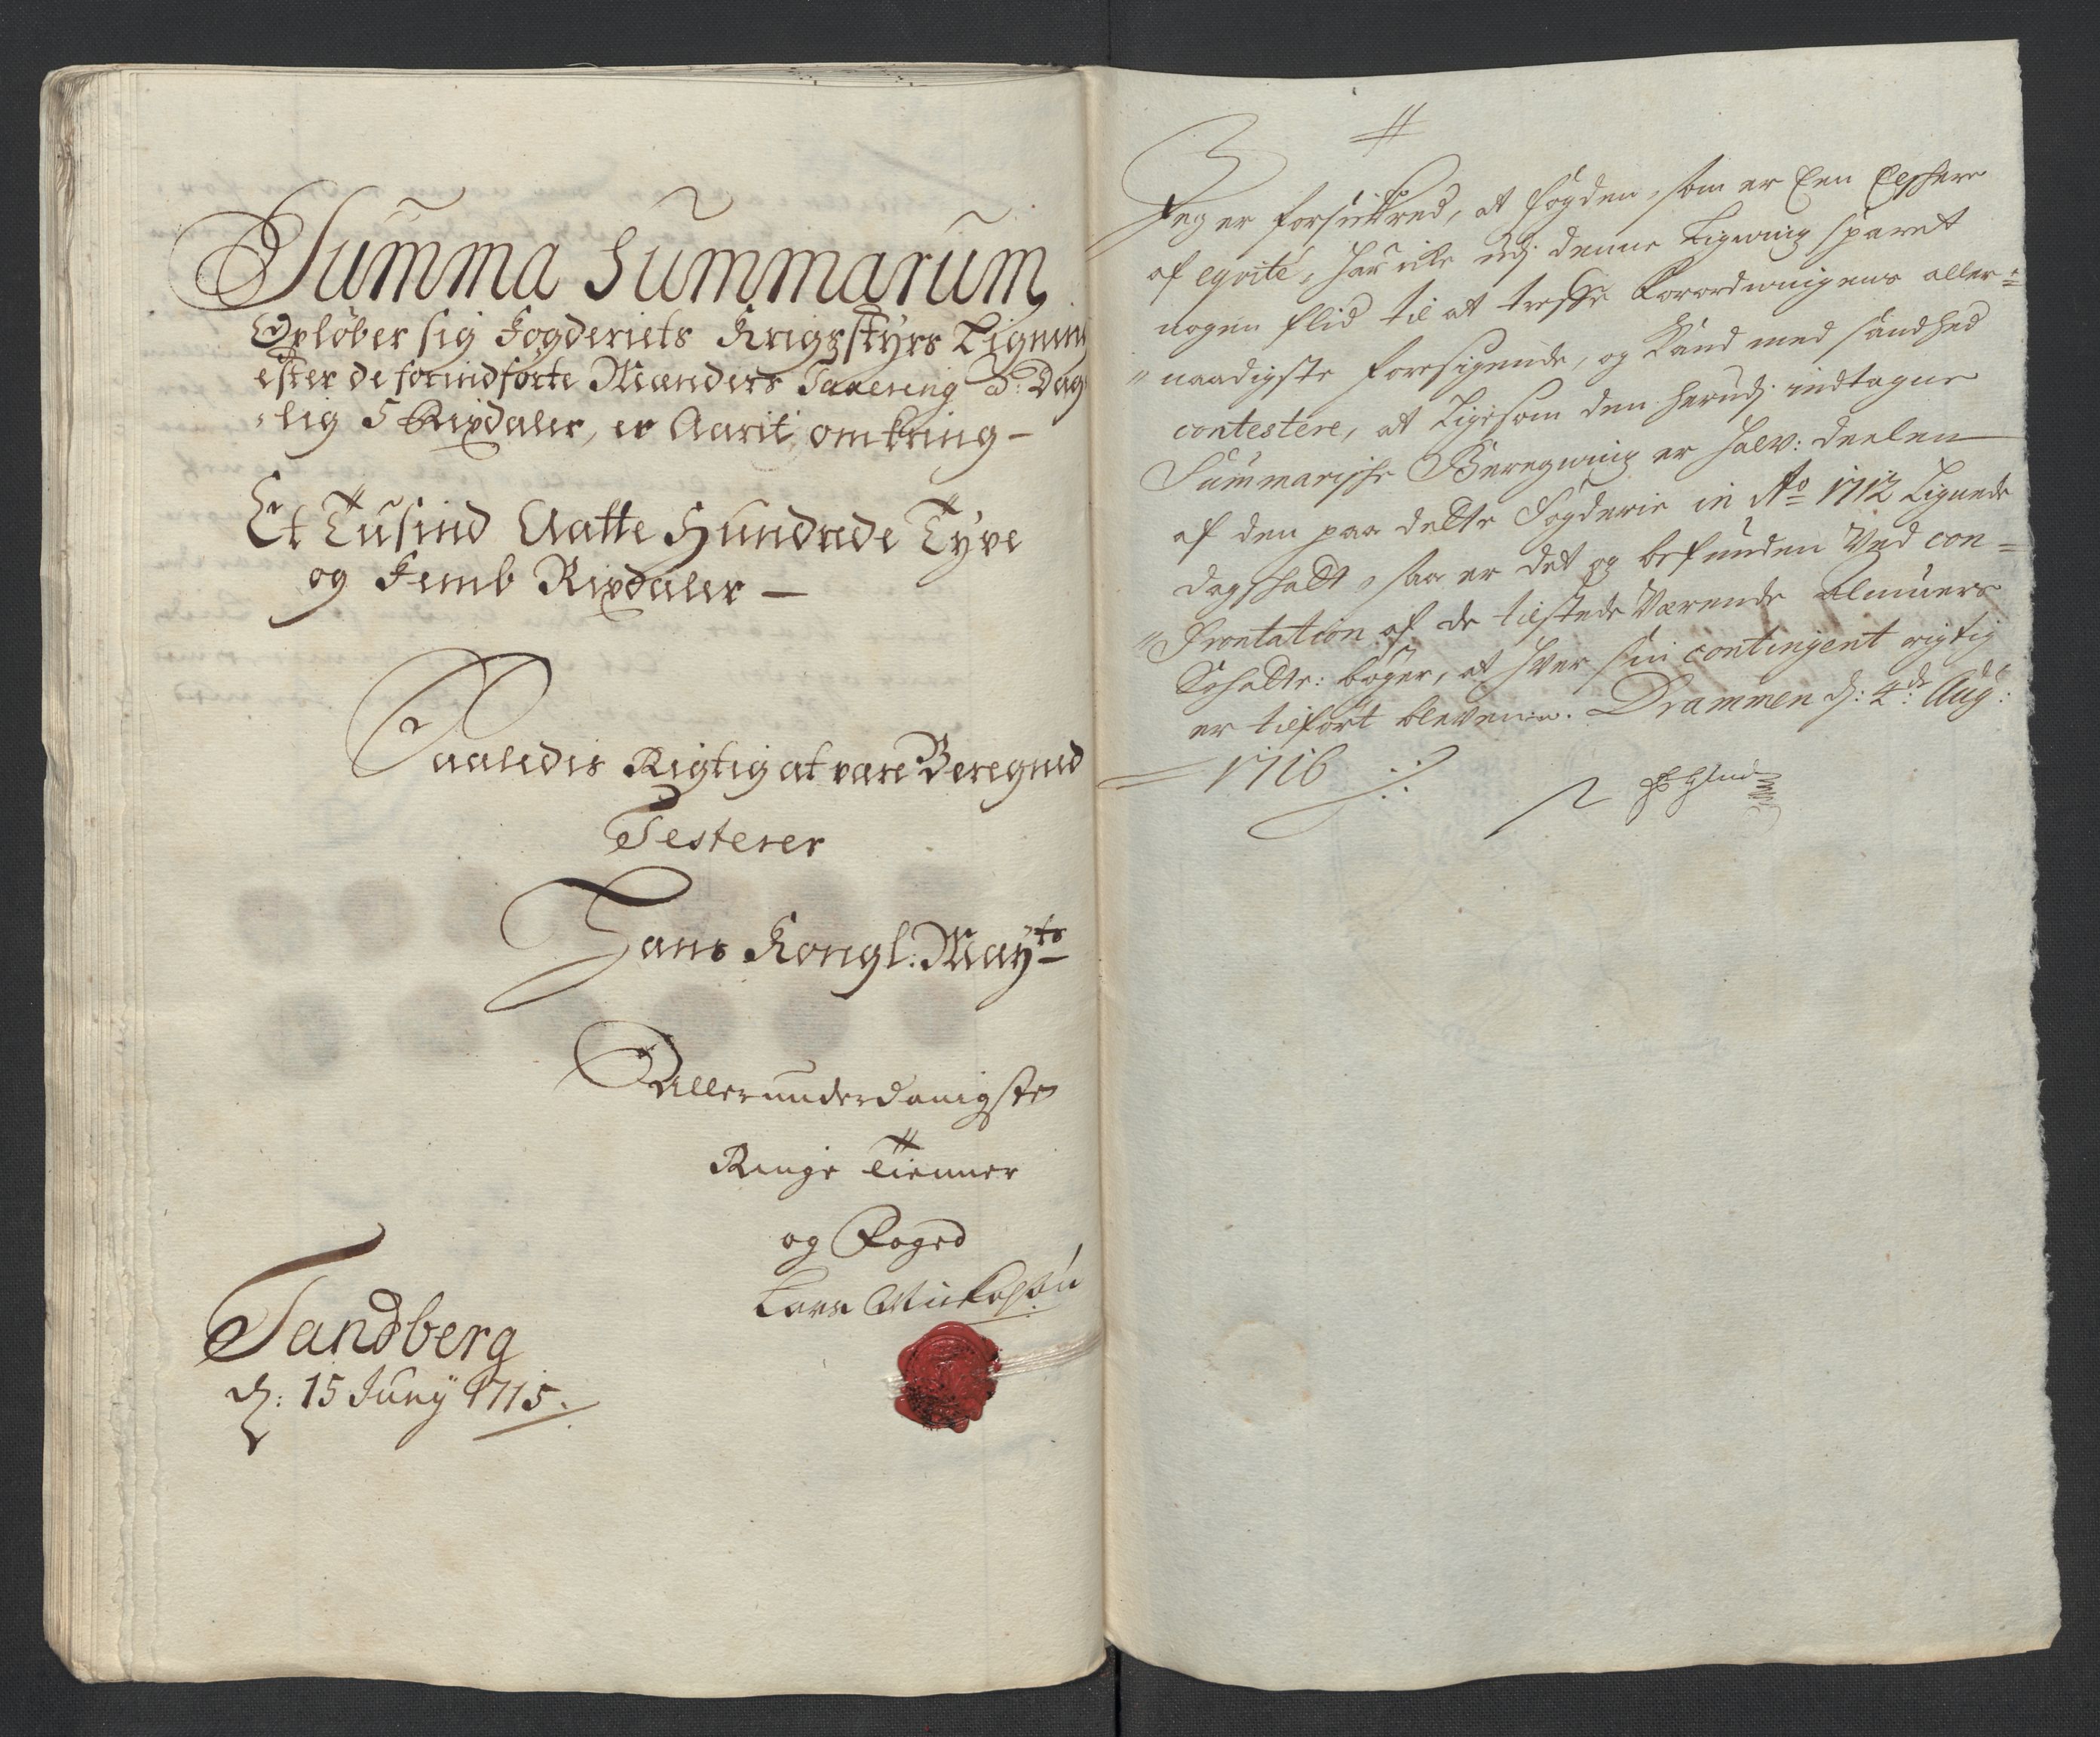 Summa Summarum
Opløber sig Fogderiets Krigsstyrs Ligning
efter de forindførte Mænders Taxering a: Dag-
lig 5 Rixdaler, er Aarit omkring -
Et Tusind Aatte Hundrede Tyve
og Femb Rixdaler -
Saaledis Rigtig at være Beregned
Testerer
Hans Kongl: Mayts
Allerunderdanigste
Ringe Tienner
og Foged
Lars
Sandberg
d: 15 Juny 1715.
Jeg er forsickred, at fogden, som er Een
af eqvité, har icke udj denne Ligning sparet
nogen flid til at treffe Forordningens aller=
naadigste foresigende, og kand med sandhed
contestere, at Ligesom den herudj indtagne
Summariske Beregning er halv: deelen
af den paa dette Fogderie in Ao 1712 Lignede
dagskatt, saa er det og befunden Ved con=
frontation af de tilstede Værende Almuens
Schatte: bøger, at hver sin contingent rigtig
er tilført blevene. Drammen d: 4de Aug:
1716